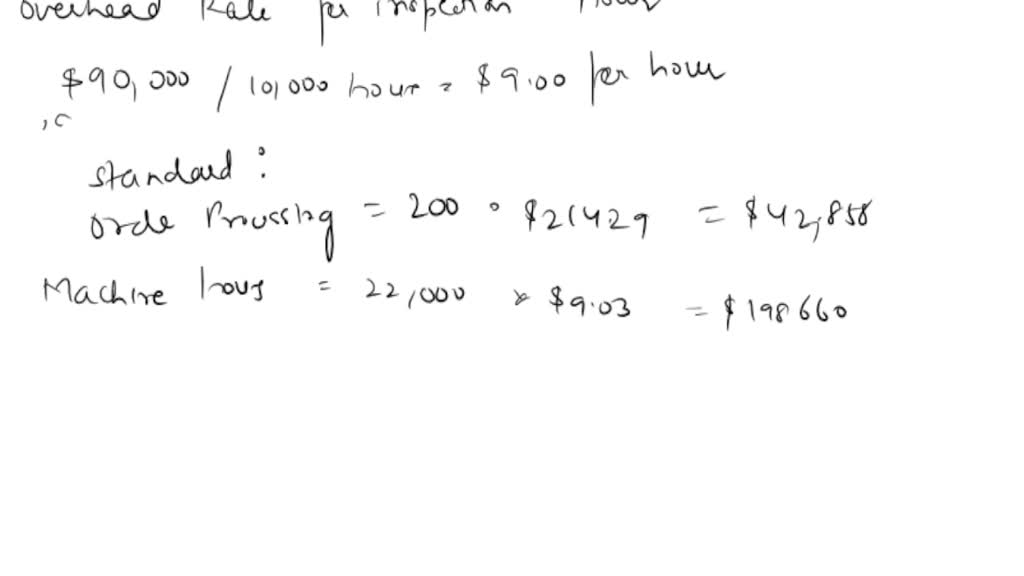 Overhead Rate per Inspection Hour
$90,000 / 10,000 hour = $9.00 per hour
,c
Standard :
Orde Proussing = 200 • $21429 = $42,858
Machine hous = 22,000 × $9.03 = $198660